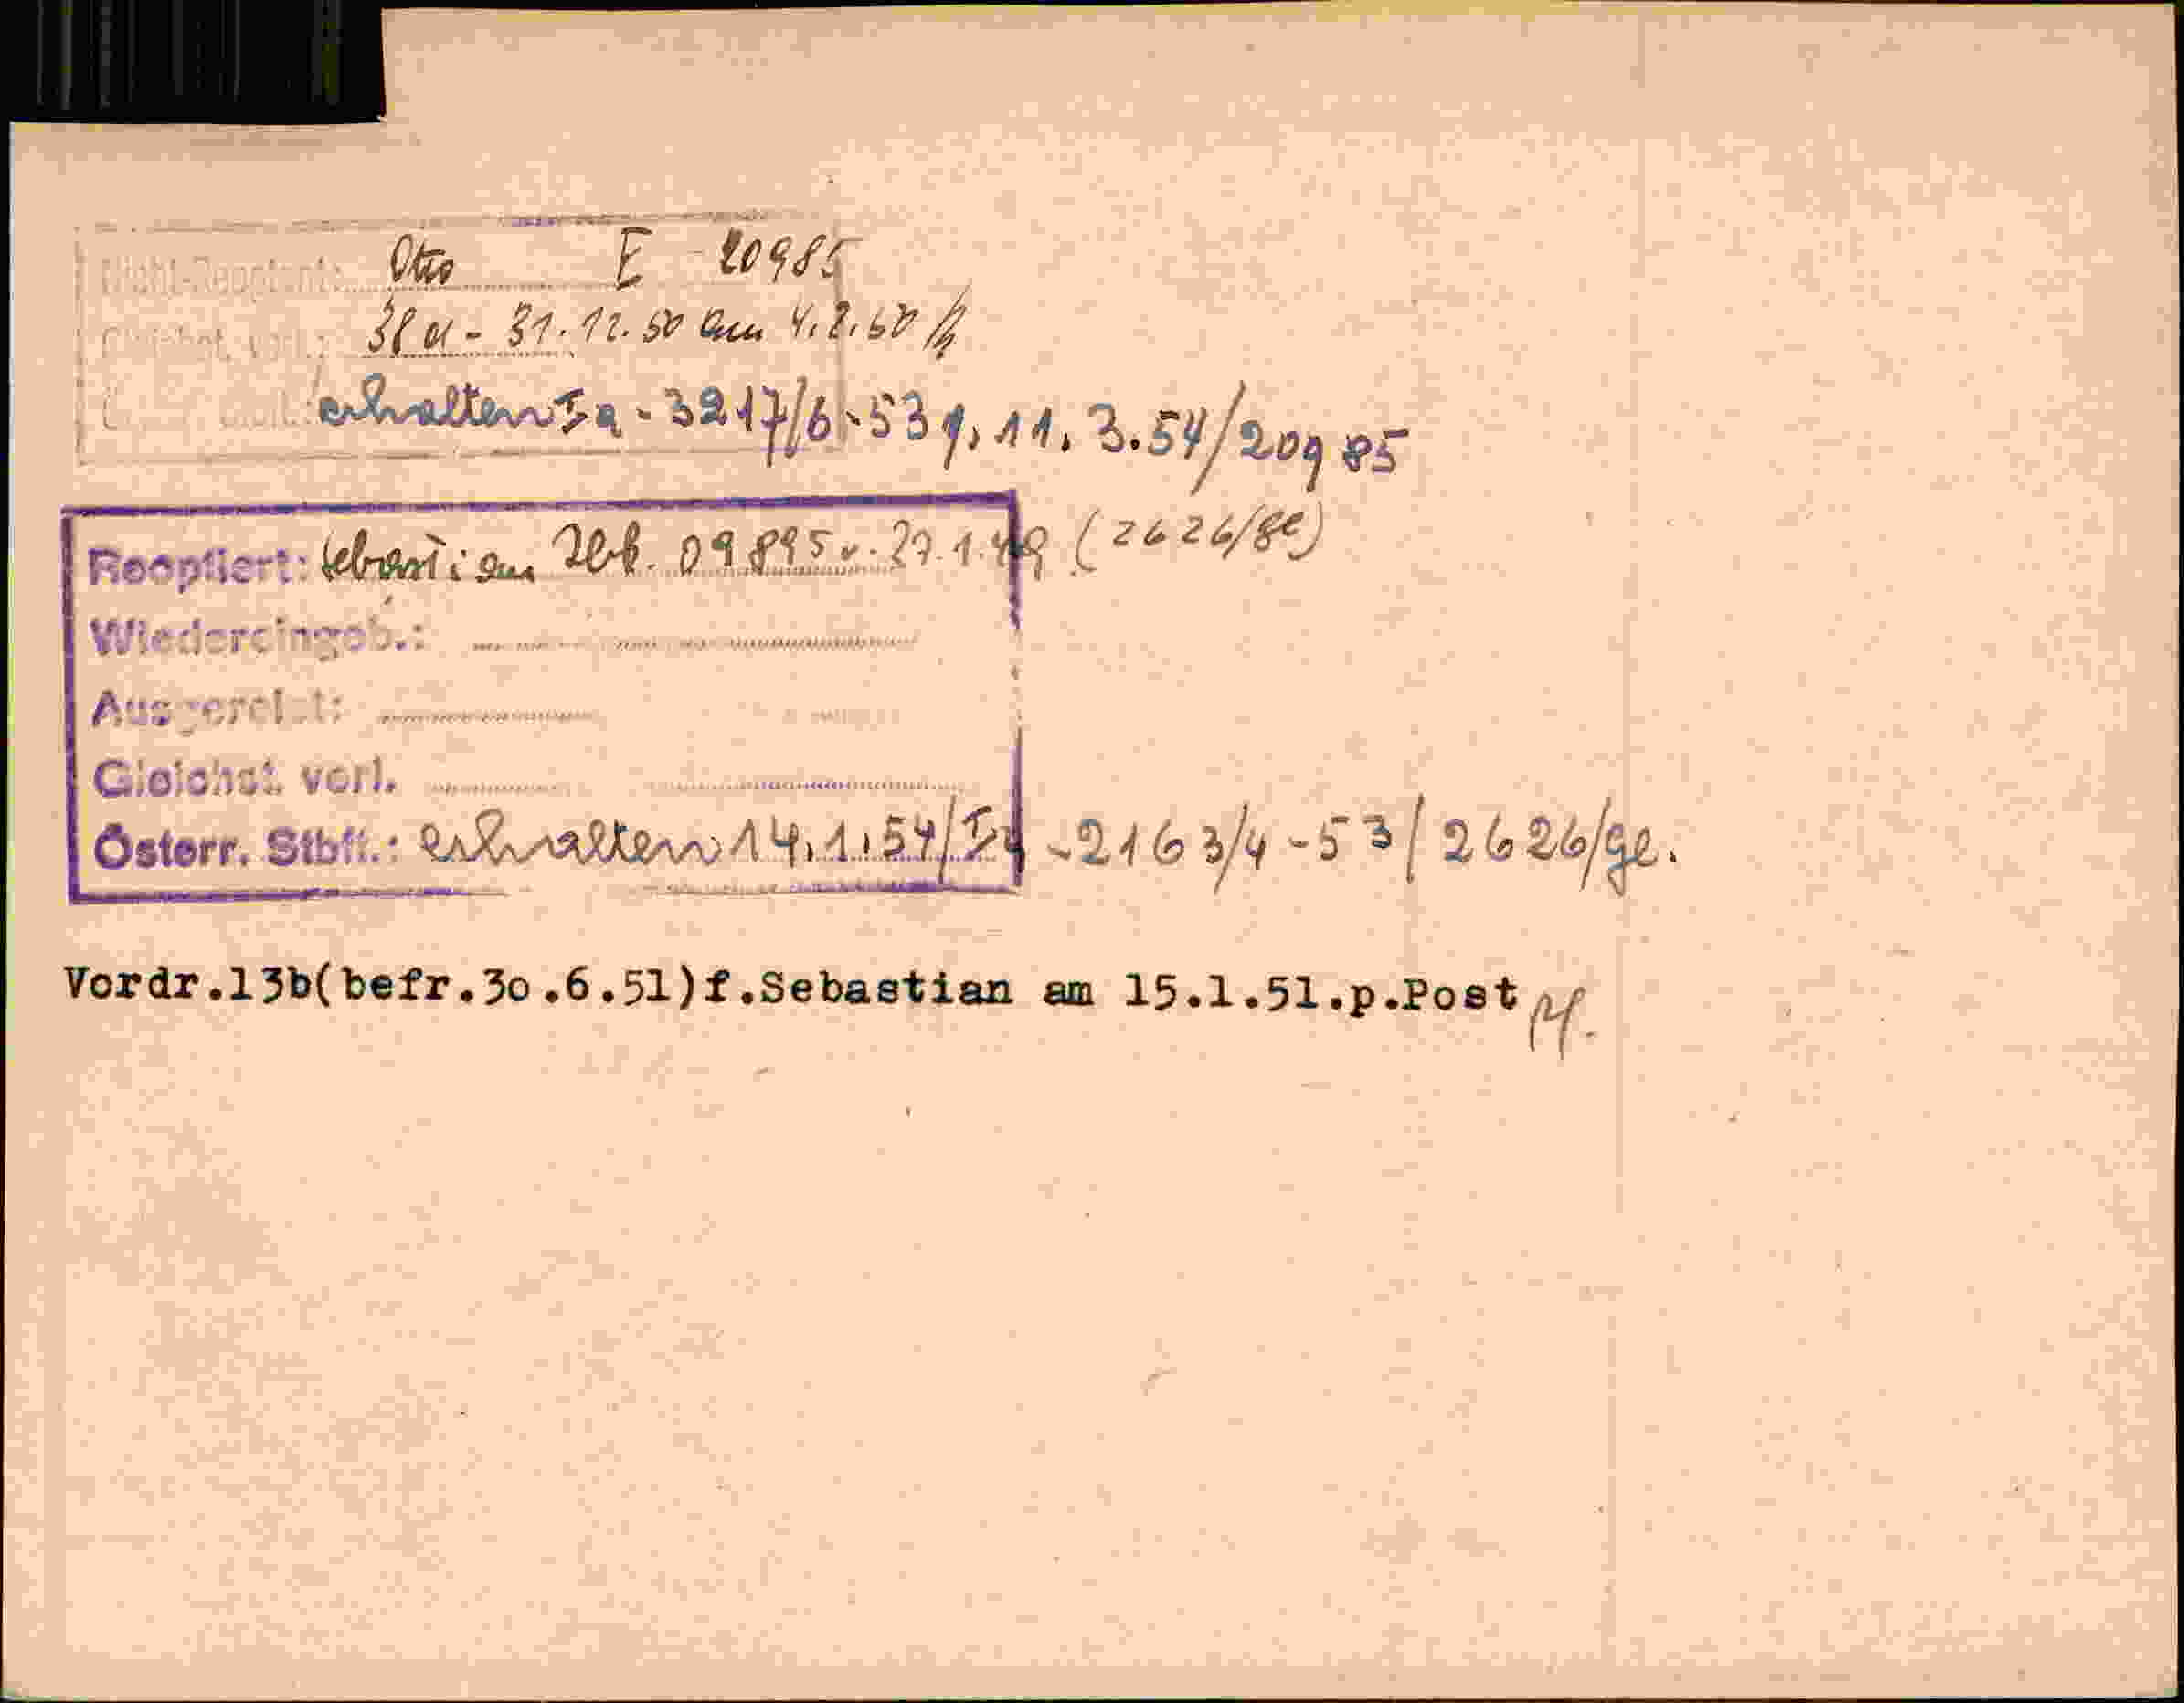 Nicht-Reoptant: Otto E 20985
Gleichst. vorl.: 38a - 31.12.50 am 4.2.50
erhalten Ia - 3217/6-53 g, 11. 3.54/20985
Reoptiert: Sebastian 09895 v. 27.1.49 (2626/ge)
Wiedereingeb.:
Ausgereist:
Gleichst. vorl.
Österr. Stbft.: erhalten 14.1.54/Ia -2163/4-53/2626/ge.
Vordr.13b(befr.3o.6.51)f.Sebastian am 15.1.51.p.Post